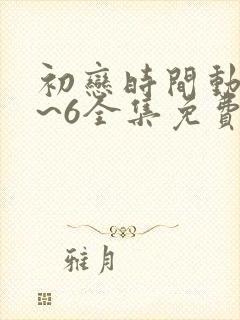 初戀時間動
~6全集免費
雅月